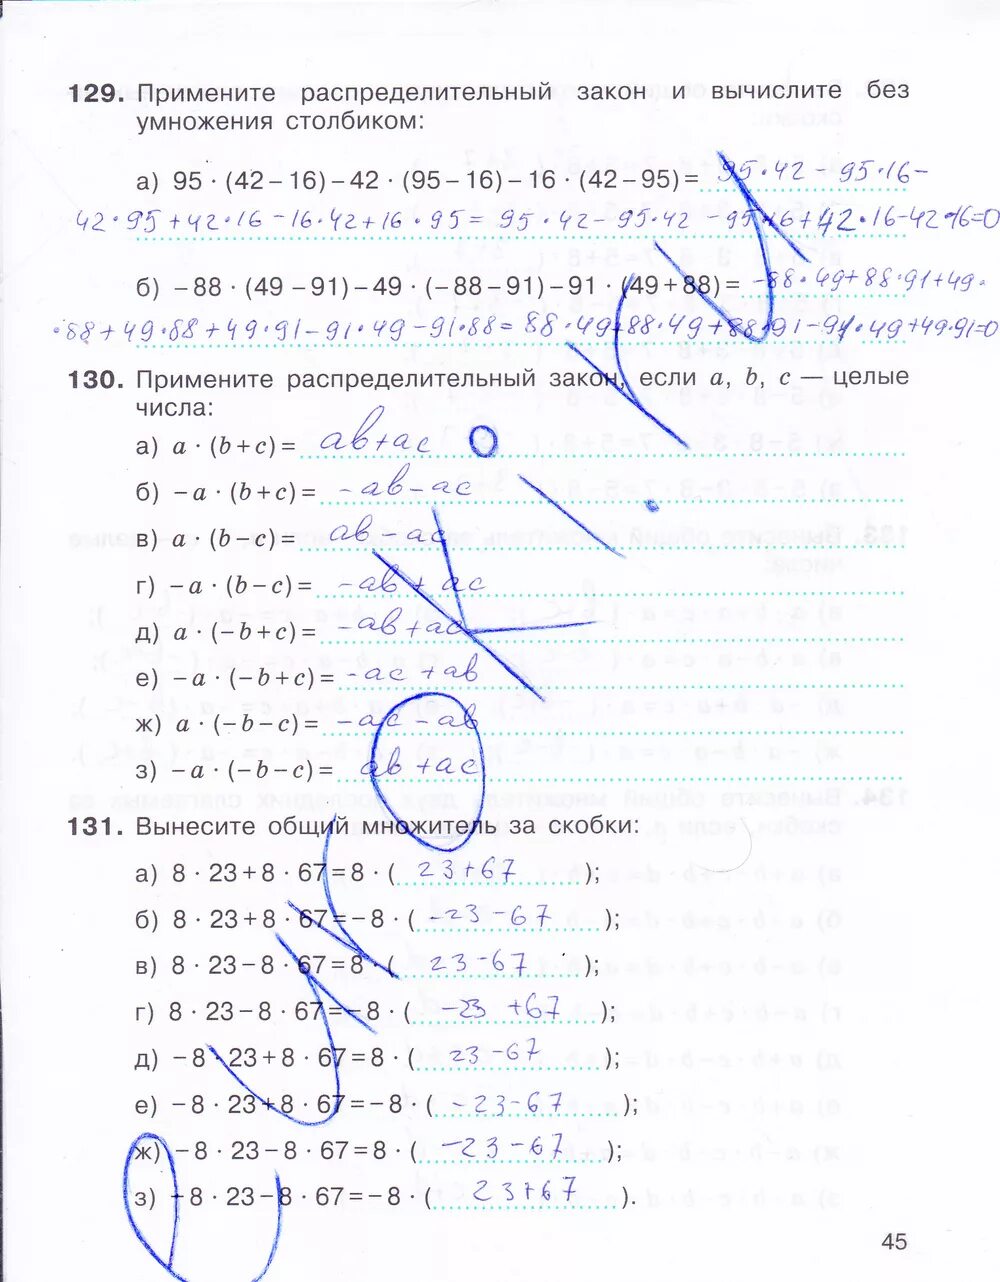 129. Примените распределительный закон и вычислите без
умножения столбиком:
а) 95 · (42 – 16) – 42 · (95 – 16) – 16 · (42 – 95) = 95 · 42 – 95 · 16 –
42 · 95 + 42 · 16 – 16 · 42 + 16 · 95 = 95 · 42 – 95 · 42 – 95 · 16 + 42 · 16 – 42 · 16 = 0
б) – 88 · (49 – 91) – 49 · (– 88 – 91) – 91 · (49 + 88) = – 88 · 49 + 88 · 91 + 49 ·
· 88 + 49 · 88 + 49 · 91 – 91 · 49 – 91 · 88 = 88 · 49 + 88 · 49 + 88 · 91 – 91 · 49 + 49 · 91 = 0
130. Примените распределительный закон, если a, b, c — целые
числа:
а) a · (b + c) = ab + ac
б) – a · (b + c) = – ab – ac
в) a · (b – c) = ab – ac
г) – a · (b – c) = – ab + ac
д) a · (– b + c) = – ab + ac
е) – a · (– b + c) = – ac + ab
ж) a · (– b – c) = – ac – ab
з) – a · (– b – c) = ab + ac
131. Вынесите общий множитель за скобки:
а) 8 · 23 + 8 · 67 = 8 · ( 23 + 67 );
б) 8 · 23 + 8 · 67 = – 8 · ( – 23 – 67 );
в) 8 · 23 – 8 · 67 = 8 · ( 23 – 67 );
г) 8 · 23 – 8 · 67 = – 8 · ( – 23 + 67 );
д) – 8 · 23 + 8 · 67 = 8 · ( 23 – 67 );
е) – 8 · 23 + 8 · 67 = – 8 · ( – 23 – 67 );
ж) – 8 · 23 – 8 · 67 = 8 · ( – 23 – 67 );
з) – 8 · 23 – 8 · 67 = – 8 · ( 23 + 67 ).
45